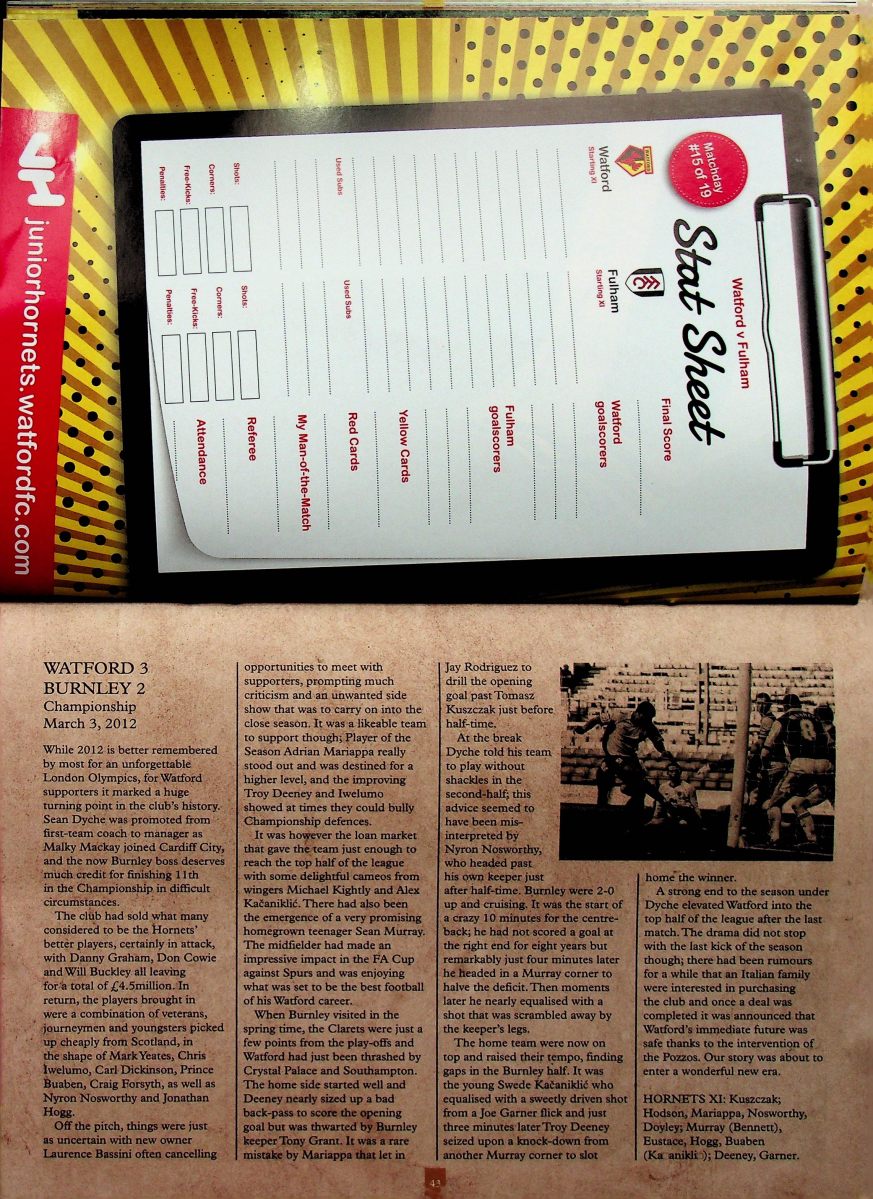 Watford v Fulham
Matchday
#15 of 19
Stat Sheet
WATFORD
Watford
Starting XI
Used Subs
Shots:
Corners:
Free-Kicks:
Penalties:
Fulham
Starting XI
Used Subs
Shots:
Corners:
Free-Kicks:
Penalties:
Final Score
Watford
goalscorers
Fulham
goalscorers
Yellow Cards
Red Cards
My Man-of-the-Match
Referee
Attendance
JH juniorhornets.watfordfc.com
WATFORD 3
BURNLEY 2
Championship
March 3, 2012
While 2012 is better remembered
by most for an unforgettable
London Olympics, for Watford
supporters it marked a huge
turning point in the club's history.
Sean Dyche was promoted from
first-team coach to manager as
Malky Mackay joined Cardiff City,
and the now Burnley boss deserves
much credit for finishing 11th
in the Championship in difficult
circumstances.
The club had sold what many
considered to be the Hornets'
better players, certainly in attack,
with Danny Graham, Don Cowie
and Will Buckley all leaving
for a total of £4.5million. In
return, the players brought in
were a combination of veterans,
journeymen and youngsters picked
up cheaply from Scotland, in
the shape of Mark Yeates, Chris
Iwelumo, Carl Dickinson, Prince
Buaben, Craig Forsyth, as well as
Nyron Nosworthy and Jonathan
Hogg.
Off the pitch, things were just
as uncertain with new owner
Laurence Bassini often cancelling
opportunities to meet with
supporters, prompting much
criticism and an unwanted side
show that was to carry on into the
close season. It was a likeable team
to support though; Player of the
Season Adrian Mariappa really
stood out and was destined for a
higher level, and the improving
Troy Deeney and Iwelumo
showed at times they could bully
Championship defences.
It was however the loan market
that gave the team just enough to
reach the top half of the league
with some delightful cameos from
wingers Michael Kightly and Alex
Kačaniklić. There had also been
the emergence of a very promising
homegrown teenager Sean Murray.
The midfielder had made an
impressive impact in the FA Cup
against Spurs and was enjoying
what was set to be the best football
of his Watford career.
When Burnley visited in the
spring time, the Clarets were just a
few points from the play-offs and
Watford had just been thrashed by
Crystal Palace and Southampton.
The home side started well and
Deeney nearly sized up a bad
back-pass to score the opening
goal but was thwarted by Burnley
keeper Tony Grant. It was a rare
mistake by Mariappa that let in
Jay Rodriguez to
drill the opening
goal past Tomasz
Kuszczak just before
half-time.
At the break
Dyche told his team
to play without
shackles in the
second-half; this
advice seemed to
have been mis-
interpreted by
Nyron Nosworthy,
who headed past
his own keeper just
after half-time. Burnley were 2-0
up and cruising. It was the start of
a crazy 10 minutes for the centre-
back; he had not scored a goal at
the right end for eight years but
remarkably just four minutes later
he headed in a Murray corner to
halve the deficit. Then moments
later he nearly equalised with a
shot that was scrambled away by
the keeper's legs.
The home team were now on
top and raised their tempo, finding
gaps in the Burnley half. It was
the young Swede Kačaniklić who
equalised with a sweetly driven shot
from a Joe Garner flick and just
three minutes later Troy Deeney
seized upon a knock-down from
another Murray corner to slot
8
home the winner.
A strong end to the season under
Dyche elevated Watford into the
top half of the league after the last
match. The drama did not stop
with the last kick of the season
though; there had been rumours
for a while that an Italian family
were interested in purchasing
the club and once a deal was
completed it was announced that
Watford's immediate future was
safe thanks to the intervention of
the Pozzos. Our story was about to
enter a wonderful new era.
HORNETS XI: Kuszczak;
Hodson, Mariappa, Nosworthy,
Doyley; Murray (Bennett),
Eustace, Hogg, Buaben
(Ka anikli ); Deeney, Garner.
43